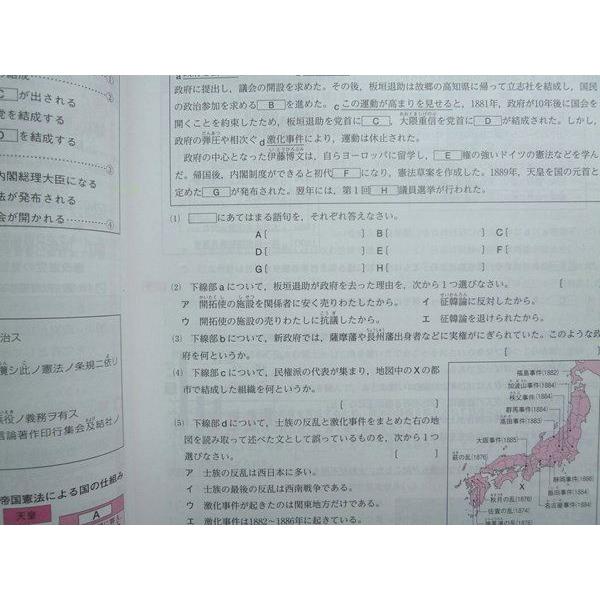 C が出される
党を結成する
D を結成する
内閣総理大臣になる
法が発布される
会が開かれる ④
治ス
憲シ此ノ憲法ノ条規ニ依リ
兵役ノ義務ヲ有ス
言論著作印行集会及結社ノ
帝国憲法による国の仕組み
天皇
A
政府に提出し、議会の開設を求めた。その後、板垣退助は故郷の高知県に帰って立志社を結成し、国民
の政治参加を求める B を進めた。cこの運動が高まりを見せると、1881年、政府が10年後に国会を
開くことを約束したため、板垣退助を党首に C 、大隈重信を党首に D が結成された。しかし、
政府の弾圧や相次ぐd激化事件により、運動は休止された。
政府の中心となった伊藤博文は、自らヨーロッパに留学し、 E 権の強いドイツの憲法などを学ん
だ。帰国後、内閣制度ができると初代 F になり、憲法草案を作成した。1889年、天皇を国の元首と
定めた G が発布された。翌年には、第1回 H 議員選挙が行われた。
(1) にあてはまる語句を、それぞれ答えなさい。
A[ ] B[ ] C[
D[ ] E[ ] F[
G[ ] H[ ]
(2) 下線部aについて、板垣退助が政府を去った理由を、次から1つ選びなさい。 [
ア 開拓使の施設を関係者に安く売りわたしたから。 イ 征韓論に反対したから。
ウ 開拓使の施設の売りわたしに抗議したから。 エ 征韓論を退けられたから。
(3) 下線部bについて、新政府では、薩摩藩や長州藩出身者などに実権がにぎられていた。このような政
府を何というか。 [
(4) 下線部cについて、民権派の代表が集まり、地図中のXの都
市で結成した組織を何というか。
[ ]
(5) 下線部dについて、士族の反乱と激化事件をまとめた右の地
図を読み取って述べた文として誤っているものを、次から1つ
選びなさい。 [ ]
ア 士族の反乱は西日本に多い。
イ 士族の最後の反乱は西南戦争である。
ウ 激化事件が起きたのは関東地方だけである。
エ 激化事件は1882～1886年に起きている。
福島事件(1882)
加波山事件(1884)
秩父事件(1884)
群馬事件(1884)
高田事件(1883)
大阪事件(1885)
萩の乱(1876)
X
静岡事件(1886)
飯田事件(1884)
名古屋事件(1884)
秋月の乱(1876)
佐賀の乱(1874)